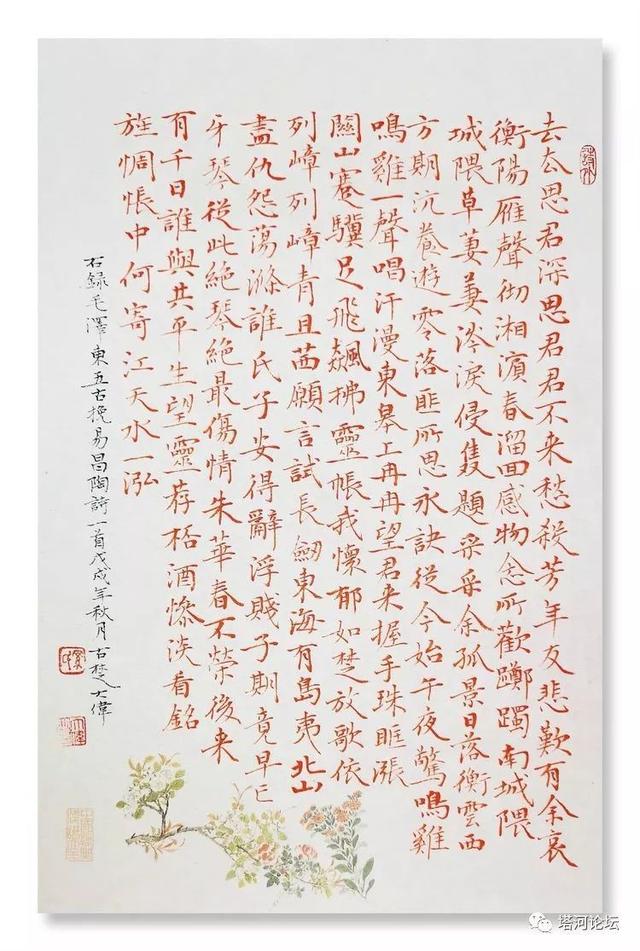 去去思君深思君君不来愁殺芳年友悲歎有余哀
衡陽雁聲彻湘濵春溜回感物念所歡躑躅南城隈
城隈草萋萋涔淚侵雙題采采余孤景日落衡雲西
方期沆瀁遊零落匪所思永訣從今始午夜驚鳴雞
鳴雞一聲唱汗漫東皋上冉冉望君来握手珠眶漲
關山蹇驥足飛飆拂靈帳我懷郁如焚放歌依
列嶂列嶂青且茜願言試長劔東海有島夷北山
盡仇怨蕩滌誰氏子安得辭浮賤子期竟早亡
牙琴從此絶琴絶最傷情朱華春不榮後来
有千日誰與共平生望靈荐桮酒慘淡看銘
旌惆悵中何寄江天水一泓
右錄毛澤東五古挽易昌陶詩一首戊戌年秋月古楚大偉
塔河论坛